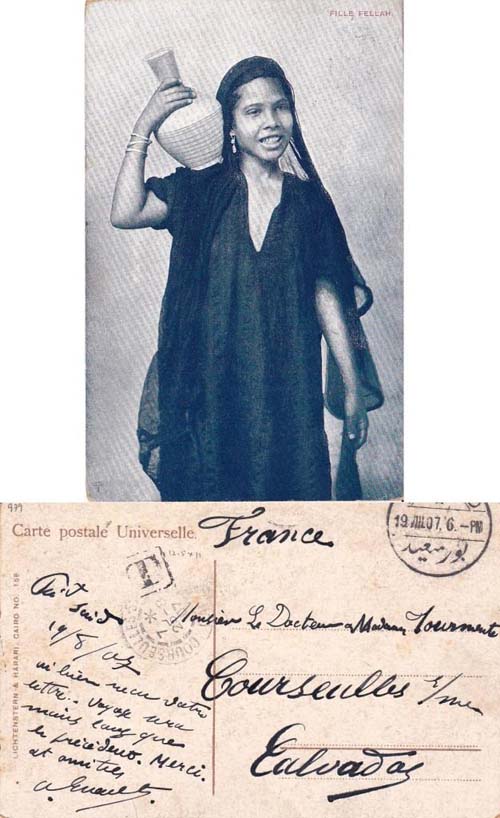 FILLE FELLAH.
979
Carte postale Universelle.
France
19 VIII 07. 6.-PM
بور سعيد
T
COURSEULLES
LICHTENSTERN & HARARI, CAIRO NO. 158
Port
Said
19/8/07
ai bien reçu votre
lettre. Voyage sera
moins long que
le précédent. Merci.
et amitiés
Monsieur Le Docteur & Madame
Courseulles s/mer
Calvados